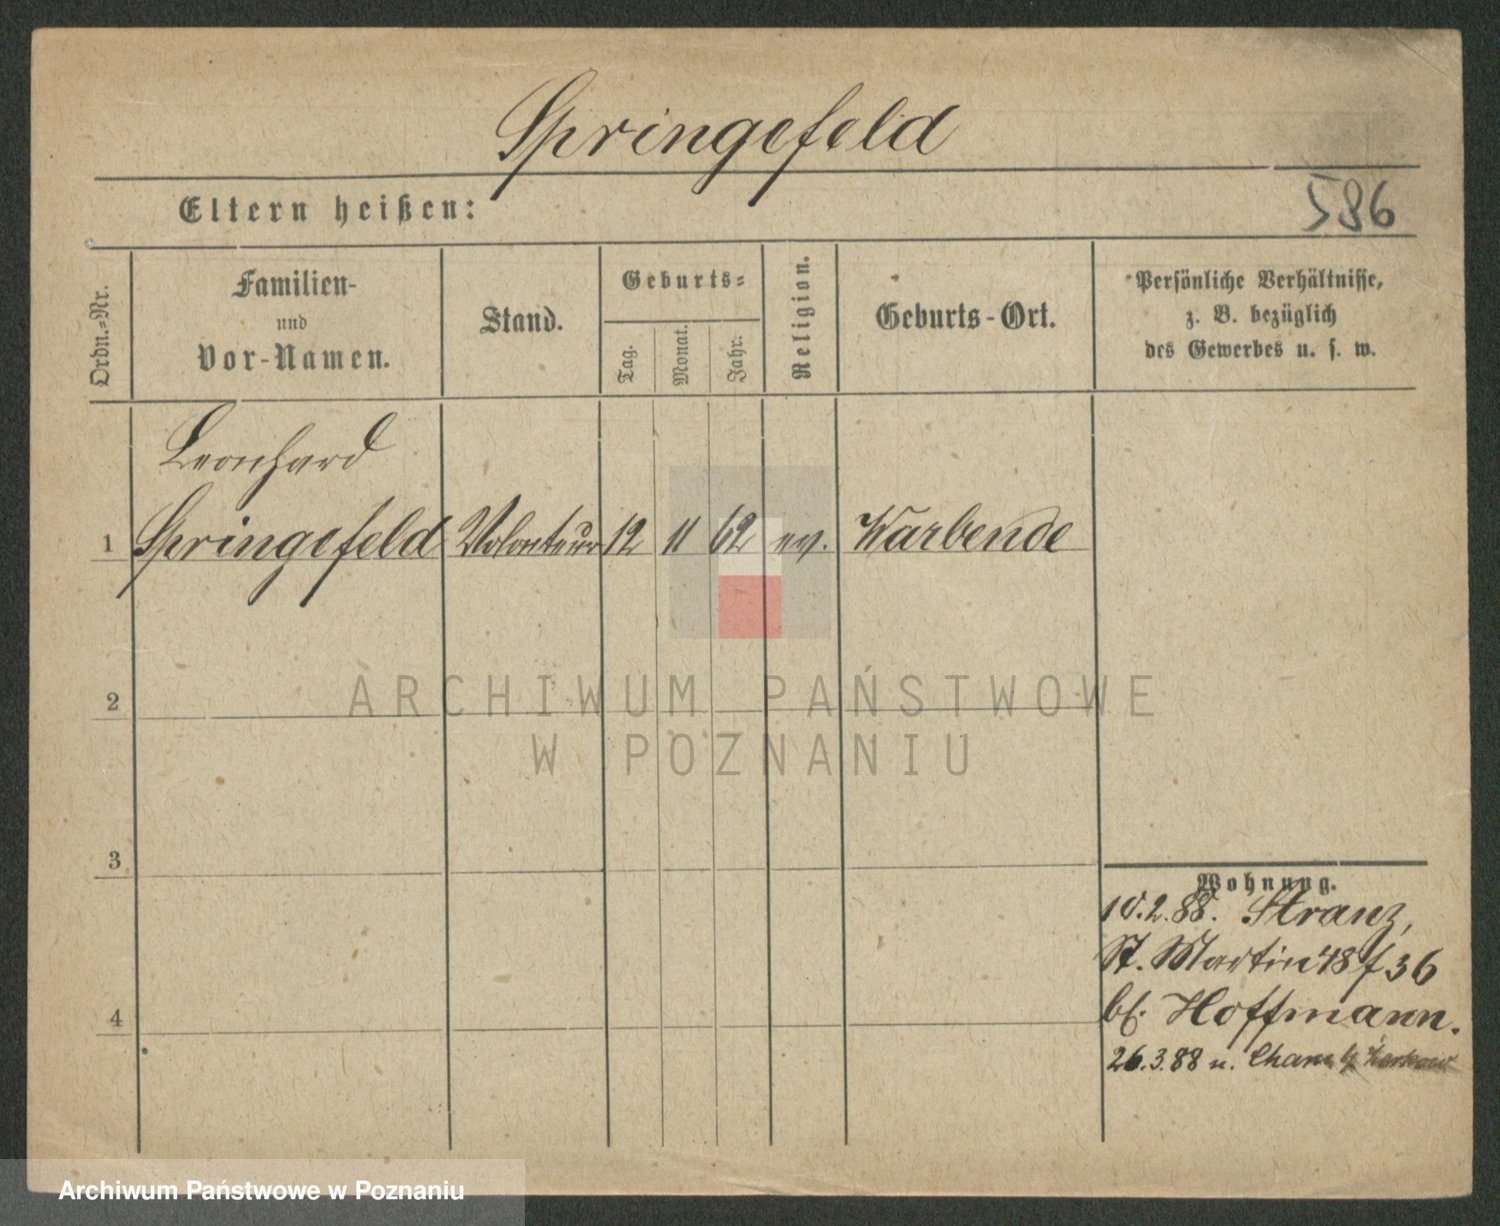 Springefeld
Eltern heißen:
586
Ordn.=Nr.
Familien-
und
Vor-Namen.
Stand.
Geburts=
Tag.
Monat.
Jahr.
Religion.
Geburts-Ort.
Persönliche Verhältnisse,
z. B. bezüglich
des Gewerbes u. s. w.
Leonhard
1 Springefeld Volonteur 12 11 62 ev. Warbende
2
ARCHIWUM PAŃSTWOWE
W POZNANIU
3
4
Wohnung.
10.2.88. Stranz,
St. Martin 48 f 36
bf. Hoffmann.
26.3.88 n.
Archiwum Państwowe w Poznaniu